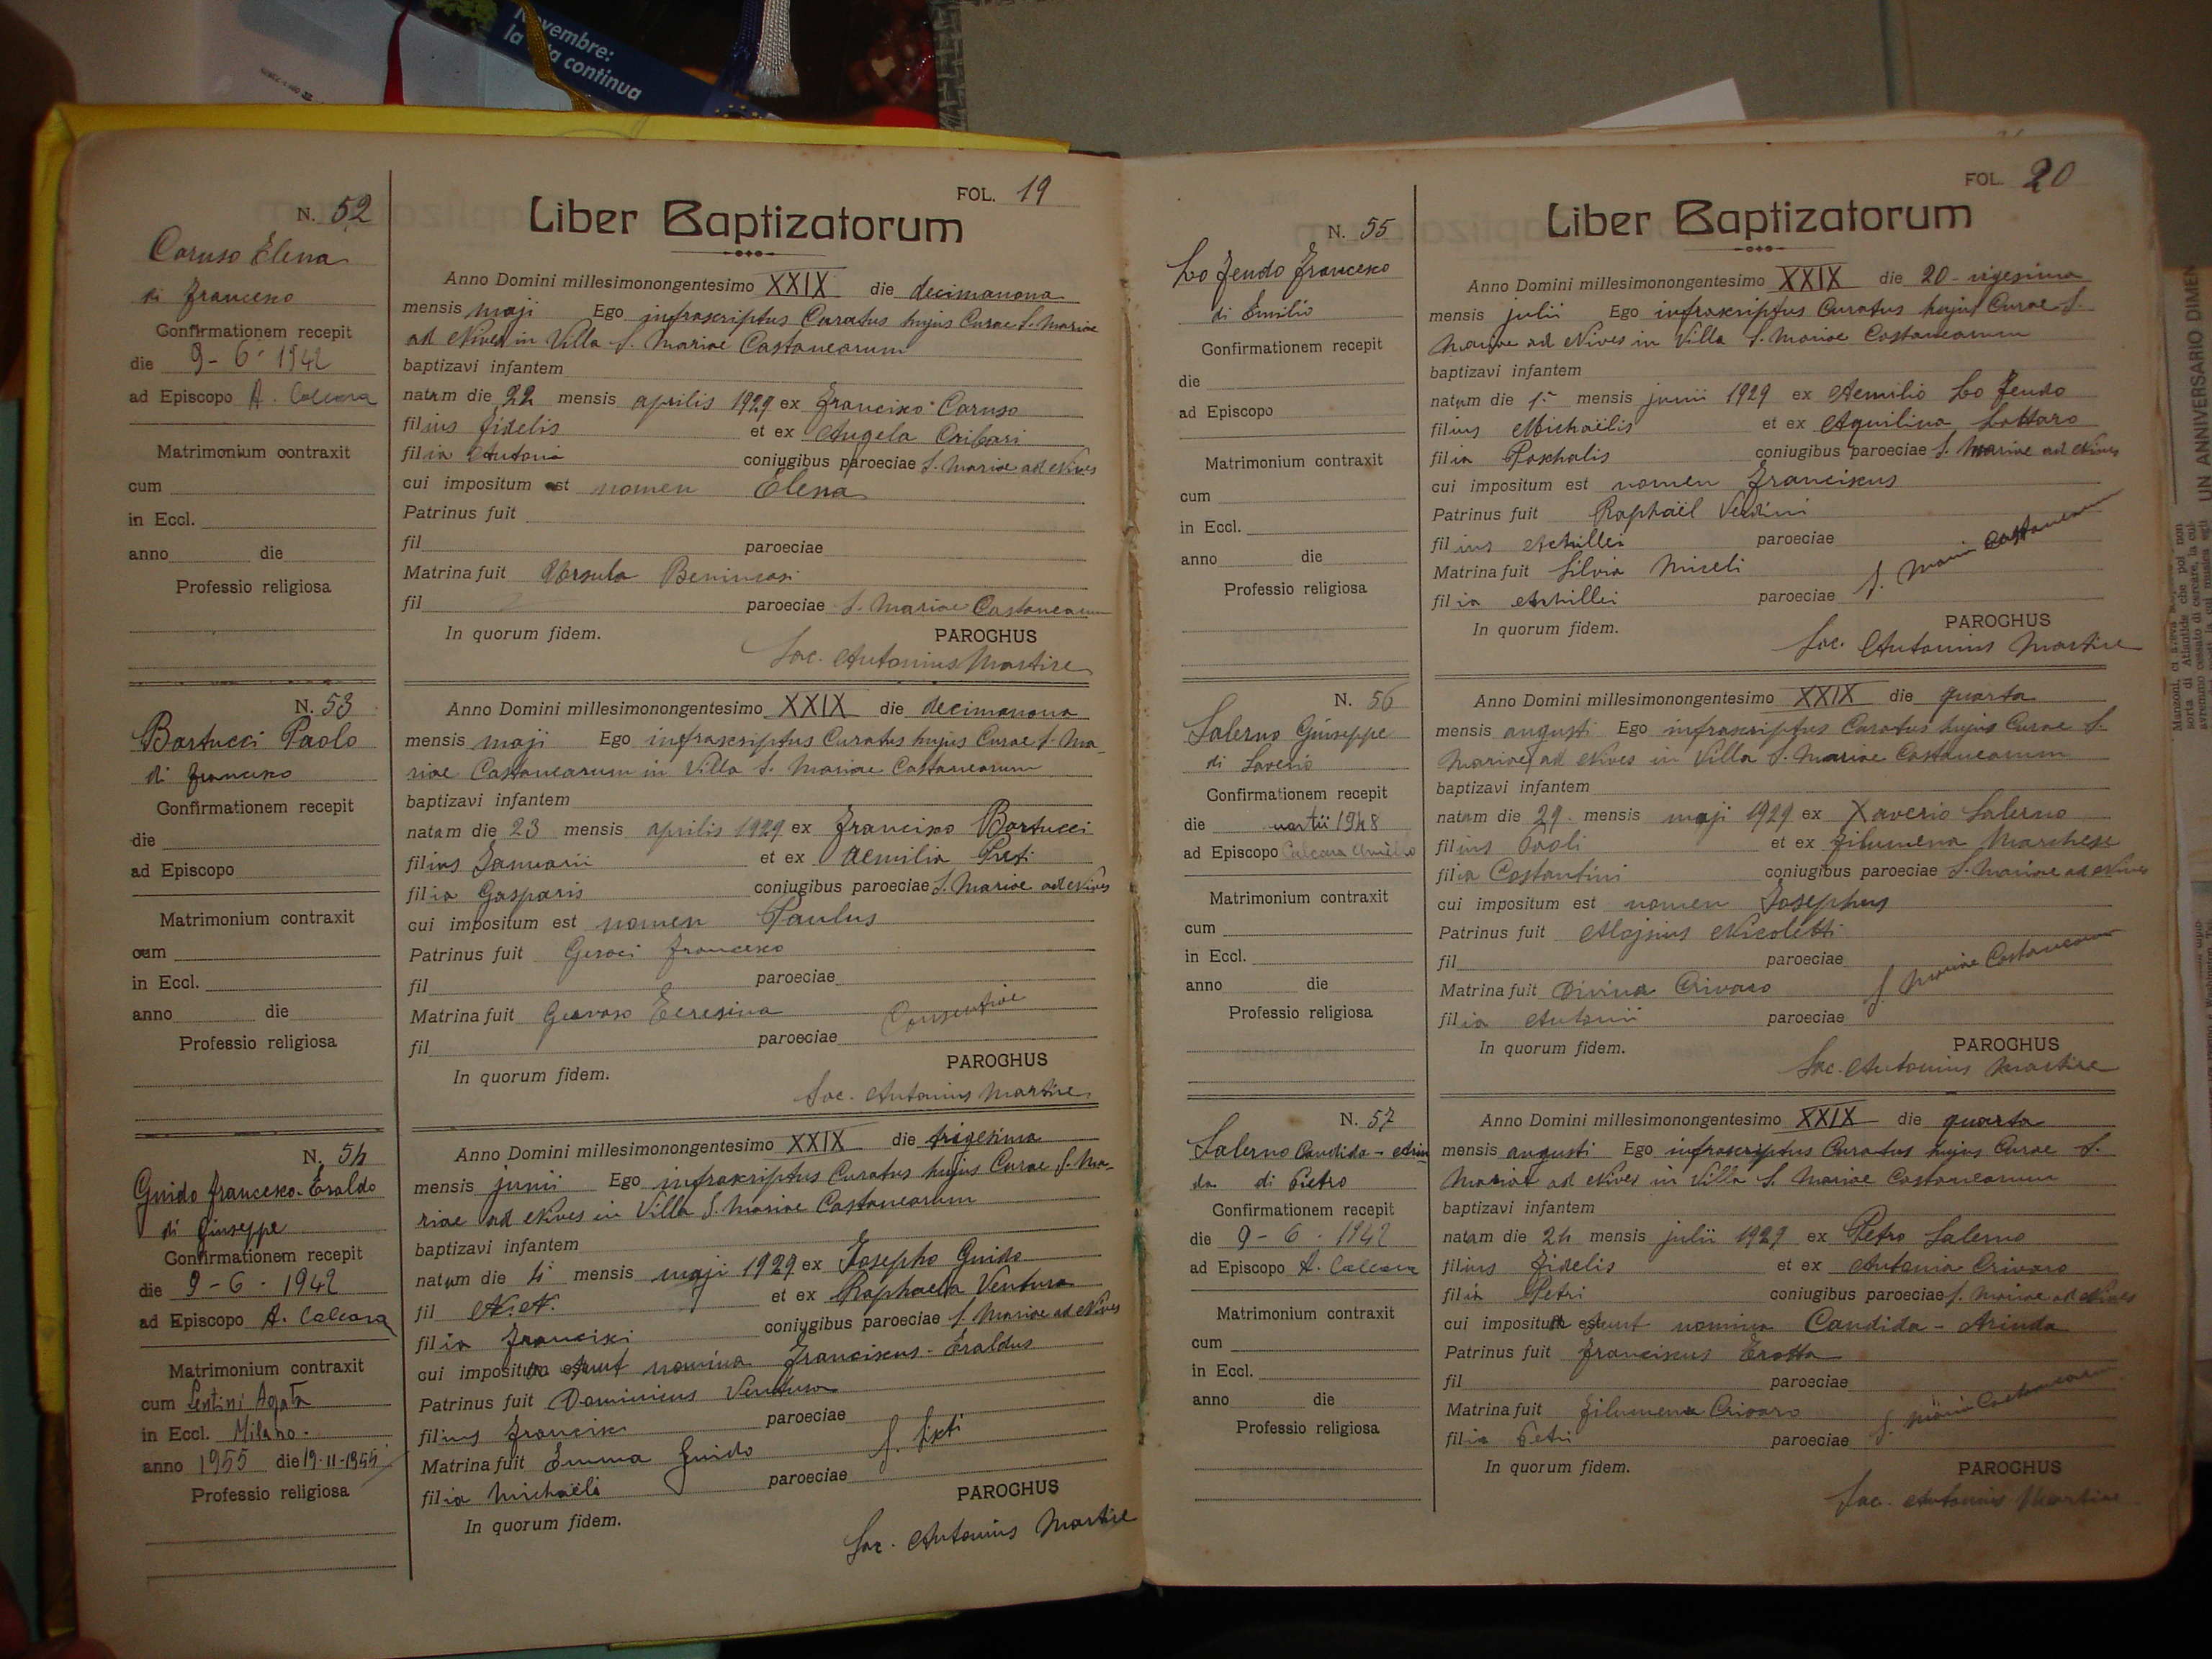 Novembre:
la vita continua
FOL. 19
N. 52
Caruso Elena
di Francesco
Confirmationem recepit
die 9 - 6 - 1942
ad Episcopo A. Calcara
Matrimonium contraxit
cum
in Eccl.
anno die
Professio religiosa
Liber Baptizatorum
Anno Domini millesimonongentesimo XXIX die decimanona
mensis maji Ego infrascriptus Curatus hujus Curae S. Mariae
ad Nives in Villa S. Mariae Castanearum
baptizavi infantem
natam die 22 mensis aprilis 1929 ex Francisco Caruso
filius Fidelis et ex Angela Cribari
filia Antoni coniugibus paroeciae S. Mariae ad Nives
cui impositum est nomen Elena
Patrinus fuit
fil paroeciae
Matrina fuit Ursula Benincasi
fil paroeciae S. Mariae Castanearum
In quorum fidem. PAROCHUS
Sac. Antonius Martire
N. 53
Bartucci Paolo
di Francesco
Confirmationem recepit
die
ad Episcopo
Matrimonium contraxit
cum
in Eccl.
anno die
Professio religiosa
Anno Domini millesimonongentesimo XXIX die decimanona
mensis maji Ego infrascriptus Curatus hujus Curae S. Ma-
riae Castanearum in Villa S. Mariae Castanearum
baptizavi infantem
natum die 23 mensis aprilis 1929 ex Francisco Bartucci
filius Januarii et ex Aemilia Preti
filia Gasparis coniugibus paroeciae S. Mariae ad Nives
cui impositum est nomen Paulus
Patrinus fuit Geraci Francesco
fil paroeciae
Matrina fuit Teresina
fil paroeciae Consentiae
In quorum fidem. PAROCHUS
Sac. Antonius Martire
N. 54
Guido Francesco-Eraldo
di Giuseppe
Confirmationem recepit
die 9 - 6 - 1942
ad Episcopo A. Calcara
Matrimonium contraxit
cum Lentini Agata
in Eccl. Milano
anno 1955 die 19-11-1955
Professio religiosa
Anno Domini millesimonongentesimo XXIX die trigesima
mensis junii Ego infrascriptus Curatus hujus Curae S. Ma-
riae ad Nives in Villa S. Mariae Castanearum
baptizavi infantem
natum die 4 mensis maji 1929 ex Josepho Guido
fil N. N. et ex Raphaela Ventura
filia Francisci coniugibus paroeciae S. Mariae ad Nives
cui imposita sunt nomina Franciscus - Eraldus
Patrinus fuit Dominicus Ventura
filius Francisci paroeciae
Matrina fuit Emma Guido
filia Michaëlis paroeciae
In quorum fidem. PAROCHUS
Sac. Antonius Martire
FOL. 20
N. 55
Lo Feudo Francesco
di Emilio
Confirmationem recepit
die
ad Episcopo
Matrimonium contraxit
cum
in Eccl.
anno die
Professio religiosa
Liber Baptizatorum
Anno Domini millesimonongentesimo XXIX die 20 - vigesima
mensis julii Ego infrascriptus Curatus hujus Curae S.
Mariae ad Nives in Villa S. Mariae Castanearum
baptizavi infantem
natum die 1a mensis junii 1929 ex Aemilio Lo Feudo
filius Michaëlis et ex Aquilina Lottaro
filia Paschalis coniugibus paroeciae S. Mariae ad Nives
cui impositum est nomen Franciscus
Patrinus fuit Raphaël
filius Achillei paroeciae
Matrina fuit Silvia Miceli S. Mariae Castanearum
filia Achillei paroeciae
In quorum fidem. PAROCHUS
Sac. Antonius Martire
N. 56
Salerno Giuseppe
di Saverio
Confirmationem recepit
die martii 1948
ad Episcopo Calcara Aniello
Matrimonium contraxit
cum
in Eccl.
anno die
Professio religiosa
Anno Domini millesimonongentesimo XXIX die quarta
mensis augusti Ego infrascriptus Curatus hujus Curae S.
Mariae ad Nives in Villa S. Mariae Castanearum
baptizavi infantem
natum die 29 mensis maji 1929 ex Xaverio Salerno
filius Paoli et ex Filumena Marchese
filia Costantini coniugibus paroeciae S. Mariae ad Nives
cui impositum est nomen Josephus
Patrinus fuit Alojsius Nicoletti
fil paroeciae
Matrina fuit Divina Crivaro S. Mariae Castanearum
filia Antonii paroeciae
In quorum fidem. PAROCHUS
Sac. Antonius Martire
N. 57
Salerno Candida - Arin
da di Pietro
Confirmationem recepit
die 9 - 6 - 1942
ad Episcopo A. Calcara
Matrimonium contraxit
cum
in Eccl.
anno die
Professio religiosa
Anno Domini millesimonongentesimo XXIX die quarta
mensis augusti Ego infrascriptus Curatus hujus Curae S.
Mariae ad Nives in Villa S. Mariae Castanearum
baptizavi infantem
natam die 24 mensis julii 1929 ex Petro Salerno
filius Fidelis et ex Antonia Crivaro
filia Petri coniugibus paroeciae S. Mariae ad Nives
cui imposita sunt nomina Candida - Arinda
Patrinus fuit Franciscus Trotta
fil paroeciae
Matrina fuit Filumena Crivaro S. Mariae Castanearum
filia Petri paroeciae
In quorum fidem. PAROCHUS
Sac. Antonius Martire
UN ANNIVERSARIO DIMEN